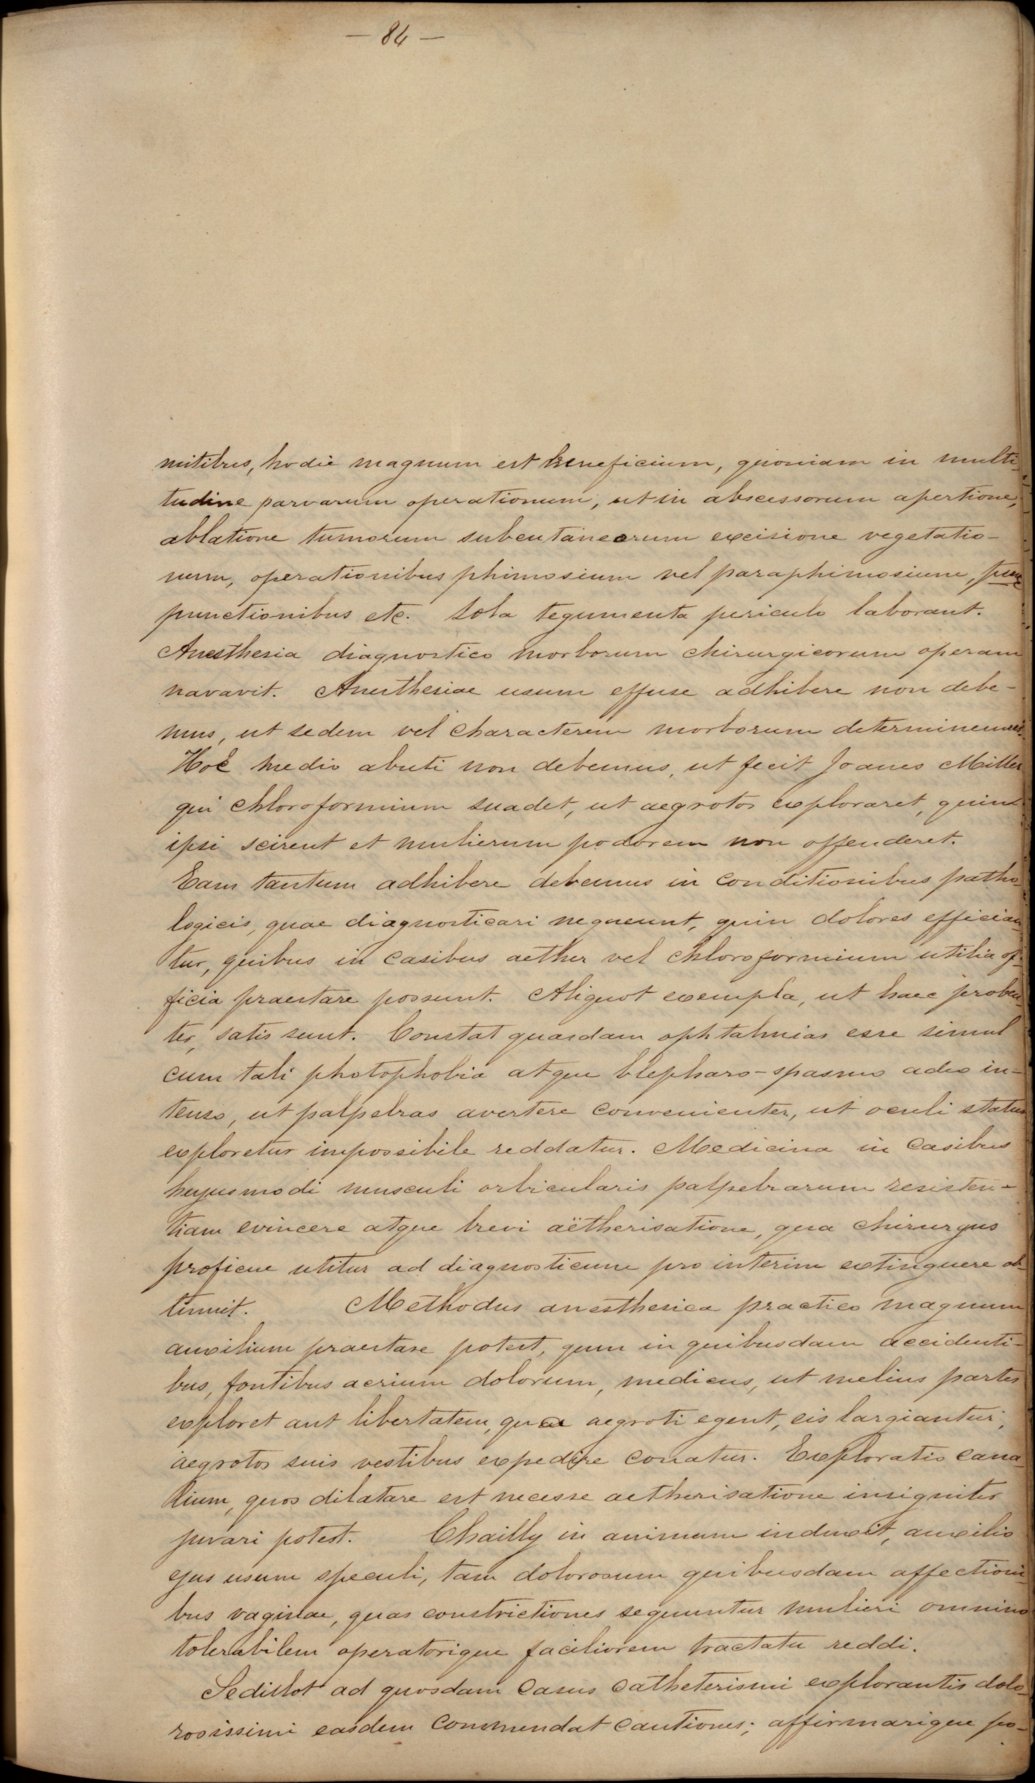 — 84 —
mitibus, hodie magnum est beneficium, quoniam in multi-
tudine parvarum operationum, ut in abscessorum apertione,
ablatione tumorum subcutaneorum excisione vegetatio-
num, operationibus phimosium vel paraphimosium,
punctionibus etc. sola tegumenta periculo laborant.
Anesthesia diagnostico morborum chirurgicorum operam
navavit. Anesthesiae usum effuse adhibere non debe-
mus, ut sedem vel characterem morborum determinemus.
Hoc medio abuti non debemus, ut fecit Joanes Miller
qui chloroformium suadet, ut aegrotos exploraret, quin
ipsi scirent et mulierum podorem non offenderet.
Eam tantum adhibere debemus in conditionibus patho-
logicis, quae diagnosticari nequeunt, quin dolores effician-
tur, quibus in casibus aether vel chloroformium utilia of-
ficia praestare possunt. Aliquot exempla, ut haec proben-
tur, satis sunt. Constat quasdam ophtalmias esse simul
cum tali photophobia atque blepharo-spasmo adeo in-
tenso, ut palpebras avertere convenienter, ut oculi status
exploretur impossibile reddatur. Medicina in casibus
hujusmodi musculi orbicularis palpebrarum resisten-
tiam evincere atque brevi aëtherisatione, qua chirurgus
proficue utitur ad diagnosticum pro interim extinguere ob-
tinuit. Methodus anesthesica practico magnum
auxilium praestare potest, quum in quibusdam accidenti-
bus, fontibus acrium dolorum, medicus, ut melius partes
exploret aut libertatem, qua aegroti egent, eis largiantur,
aegrotos suis vestibus expedire conatur. Exploratio cana-
lium, quos dilatare est necesse aetherisatione insigniter
juvari potest. Chailly in animum induxit, auxilio
ejus usum speculi, tam dolorosum quibusdam affectioni-
bus vaginae, quas constrictiones sequuntur mulieri omnino
tolerabilem operatorique faciliorem tractatu reddi.
Sedillot ad quosdam casus catheterismi explorantis dolo-
rosissimi easdem commendat cautiones; affirmarique po-